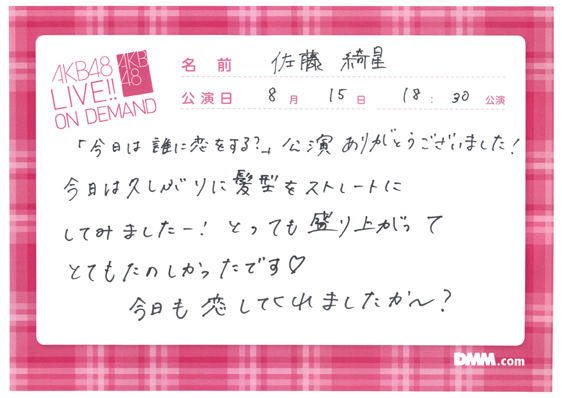 AKB48
LIVE!!
ON DEMAND
AKB
48
名 前 佐藤 綺星
公演日 8月 15日 18:30 公演
「今日は 誰に恋をする?」公演 ありがとうございました!
今日は久しぶりに髪型をストレートに
してみましたー! とっても盛り上がって
とてもたのしかったです♡
今日も 恋してくれましたか〜?
DMM.com